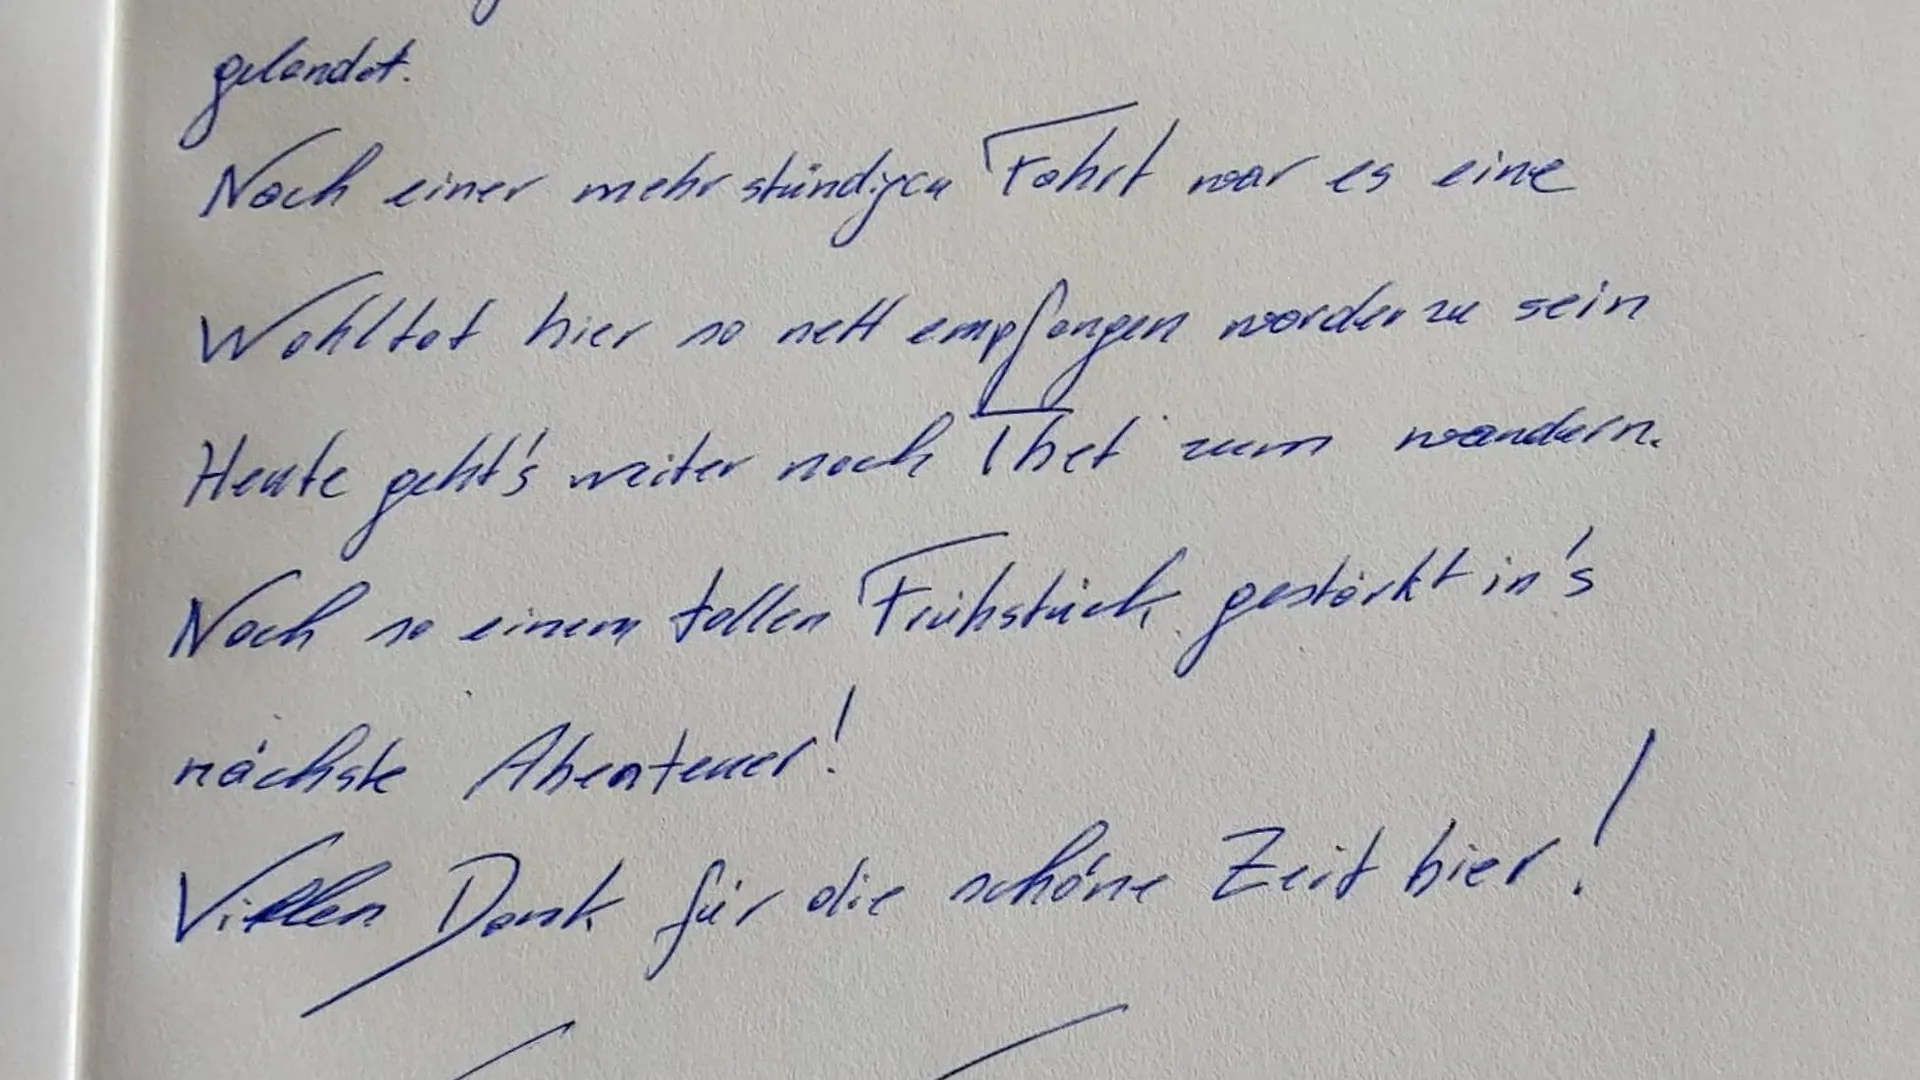 gelandet.
Nach einer mehrstündigen Fahrt war es eine
Wohltat hier so nett empfangen worden zu sein
Heute geht's weiter nach Thet zum wandern.
Nach so einem tollen Frühstück gestärkt in's
nächste Abenteuer!
Vielen Dank für die schöne Zeit hier!